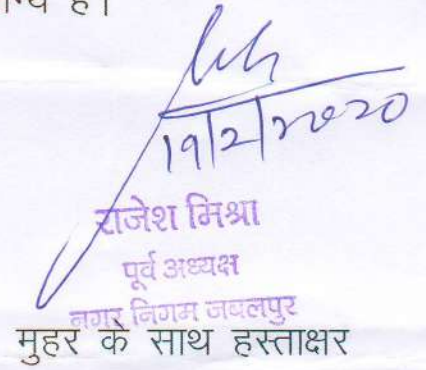 है।
19/2/2020
राजेश मिश्रा
पूर्व अध्यक्ष
नगर निगम जबलपुर
मुहर के साथ हस्ताक्षर